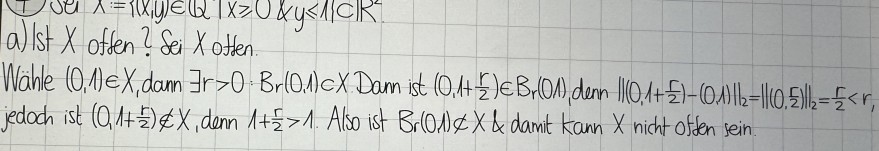 Sei X := {(x,y) ∈ Q² | x ≥ 0 & y < 1} ⊂ R²
a) Ist X offen? Sei X offen.
Wähle (0,1) ∈ X, dann ∃r>0: Br(0,1) ⊂ X. Dann ist (0,1+r/2) ∈ Br(0,1), denn ||(0,1+r/2)-(0,1)||₂ = ||(0,r/2)||₂ = r/2 < r,
jedoch ist (0,1+r/2) ∉ X, denn 1+r/2 > 1. Also ist Br(0,1) ⊄ X & damit kann X nicht offen sein.